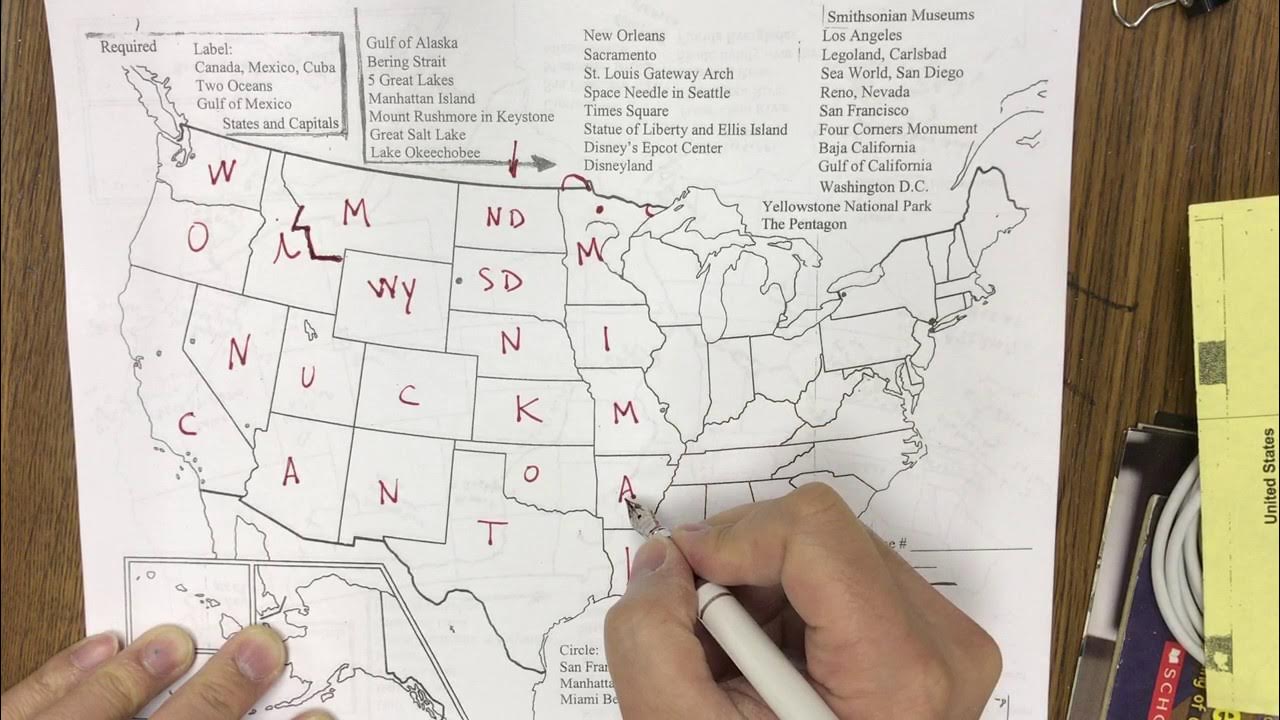 Required
Label:
Canada, Mexico, Cuba
Two Oceans
Gulf of Mexico
States and Capitals
Gulf of Alaska
Bering Strait
5 Great Lakes
Manhattan Island
Mount Rushmore in Keystone
Great Salt Lake
Lake Okeechobee
New Orleans
Sacramento
St. Louis Gateway Arch
Space Needle in Seattle
Times Square
Statue of Liberty and Ellis Island
Disney's Epcot Center
Disneyland
Smithsonian Museums
Los Angeles
Legoland, Carlsbad
Sea World, San Diego
Reno, Nevada
San Francisco
Four Corners Monument
Baja California
Gulf of California
Washington D.C.
Yellowstone National Park
The Pentagon
W
M
ND
M
O
I
WY
SD
N
I
N
U
C
K
M
C
A
N
O
A
T
L
Circle:
San
#
United States